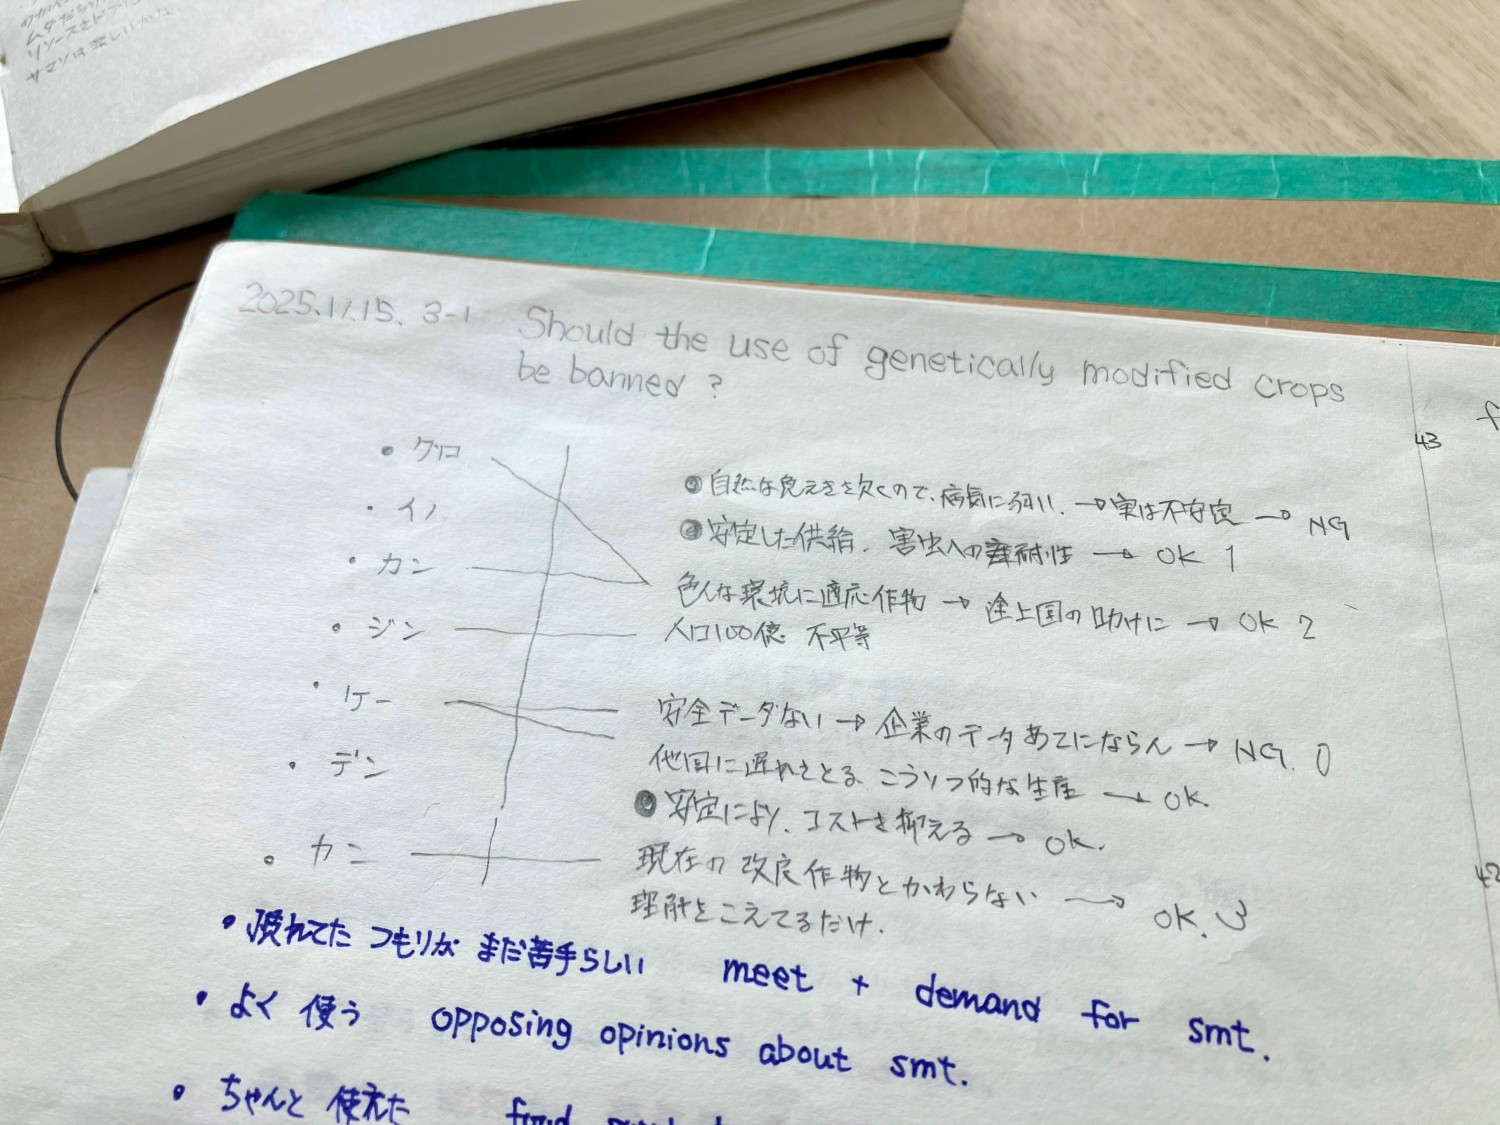 リソースを
サマソは楽しいかな
2025.11.15. 3-1 Should the use of genetically modified crops
be banned ?
43
・クロ
・イノ
・カン
・ジン
・ケー
・デン
・カン
自然な免えきを欠くので、病気に弱い. → 実は不安定 → NG
安定した供給. 害虫への耐性 → OK 1
色んな環境に適応作物 → 途上国の助けに → OK 2
人口100億 不平等
安全データない → 企業のデータあてにならん → NG. 0
他国に遅れをとる. こうりつ的な生産 → OK.
安定により. コストを抑える → OK.
現在の改良作物とかわらない → OK. 3
理解をこえてるだけ.
42
・慣れてたつもりがまだ苦手らしい meet + demand for smt.
・よく使う opposing opinions about smt.
・ちゃんと使えた find